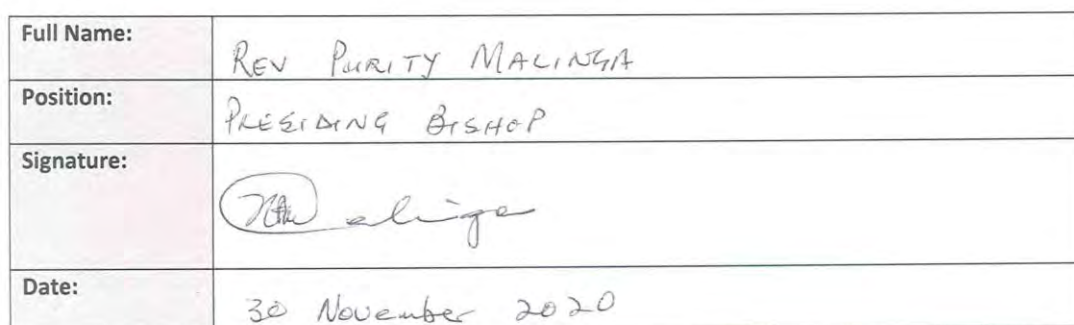 Full Name:
REV PURITY MALINGA
Position:
PRESIDING BISHOP
Signature:
Date:
30 November 2020